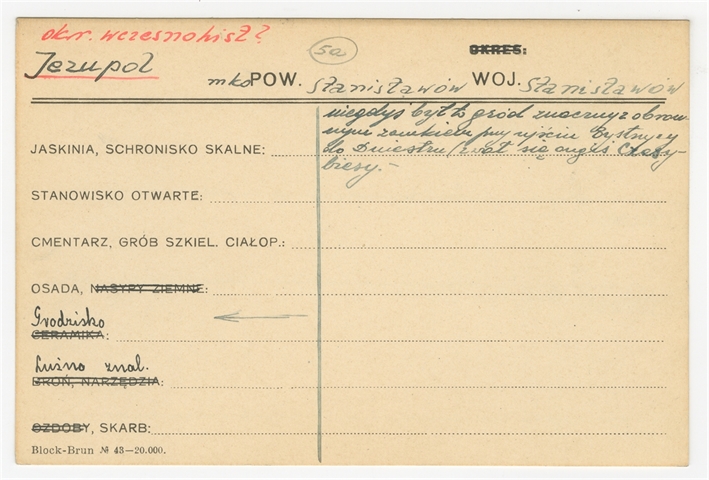 okr. wczesnohist?
5a
OKRES:
Jezupol
mko POW. Stanisławów WOJ. Stanisławów
niegdyś był to gród znaczny z obron-
nym zamkiem przy ujściu Bystrzycy
do Dniestru (zwał się ongiś Czeszy-
biesy. –
JASKINIA, SCHRONISKO SKALNE:
STANOWISKO OTWARTE:
CMENTARZ, GRÓB SZKIEL. CIAŁOP.:
OSADA, NASYPY ZIEMNE:
Grodzisko
CERAMIKA:
Luźno znal.
BROŃ, NARZĘDZIA:
OZDOBY, SKARB:
Block-Brun № 43—20.000.